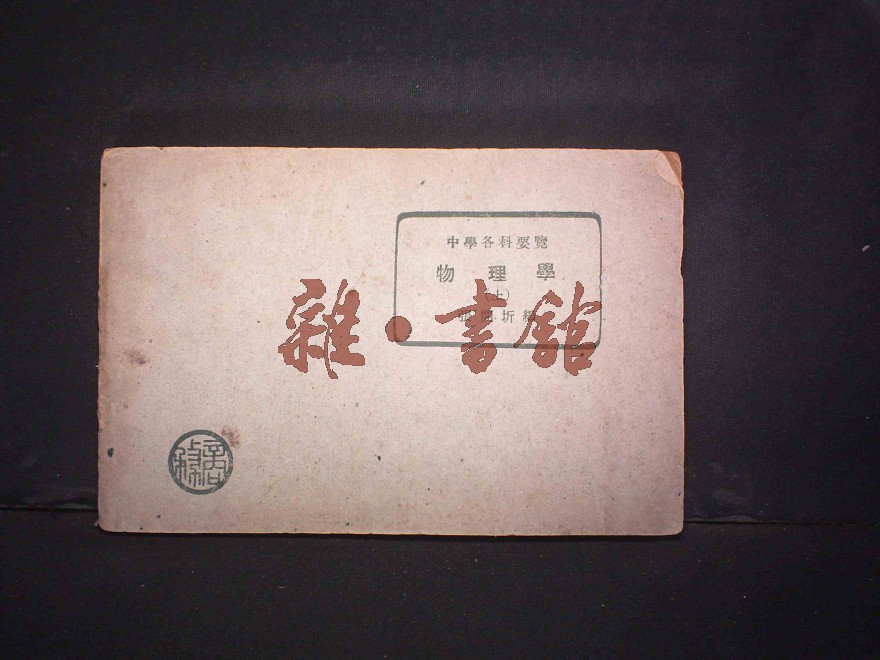 中學各科要覽
物理學
(上)
開圻編
雜·書館